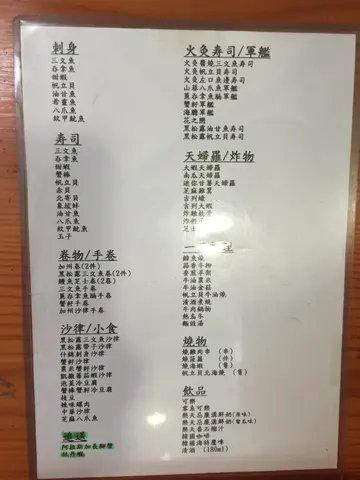 刺身
三文魚
吞拿魚
甜蝦
帆立貝
油甘魚
希靈魚
八爪魚
紋甲魷魚
寿司
三文魚
吞拿魚
甜蝦
蟹棒
帆立貝
赤貝
北寄貝
象拔蚌
油甘魚
八爪魚
紋甲魷魚
玉子
卷物/手卷
加州卷(2件)
黑松露三文魚卷(2件)
鰻魚芝士卷(2卷)
三文魚手卷
蔥吞拿魚腩手卷
蟹籽手卷
加州沙律手卷
沙律/小食
黑松露三文魚沙律
黑松露帶子沙律
什錦刺身沙律
蟹籽沙律
粟米蟹籽沙律
凱撒蕃茄蝦沙律
泡菜冷豆腐
蟹棒蟹籽冷豆腐
枝豆
辣味螺肉
中華沙律
芝麻八爪魚
火炙寿司/軍艦
火炙醬燒三文魚寿司
火炙帆立貝寿司
火炙左口魚邊寿司
山葵八爪魚軍艦
蔥吞拿魚腩軍艦
蟹籽軍艦
海膽軍艦
花之戀
黑松露油甘魚寿司
黑松露帆立貝寿司
天婦羅/炸物
大蝦天婦羅
南瓜天婦羅
迷你甘薯天婦羅
芝麻雞翼
吉列蠔
吉列大蝦
炸雞軟骨
芝士
一
牛油粟米
牛油金菇
帆立貝牛油燒
清酒煮蜆
牛肉鍋物
熱烏冬
麵豉湯
燒物
燒雞肉串 (串)
燒菠蘿 (件)
燒海蝦 (隻)
帆立貝北海燒 (隻)
飲品
可樂
零系可樂
樂天芯廣溝鮮奶(原味)
韓國咖啡
清酒 (180ml)